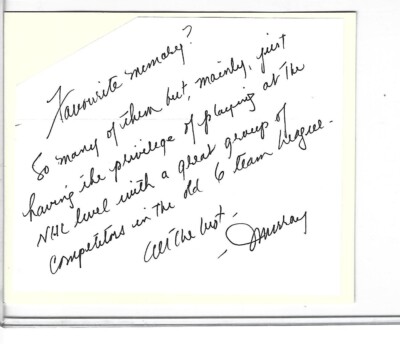 Favourite memory?
So many of them but, mainly, just
having the privilege of playing at the
NHL level with a great group of
competitors in the old 6 team League.
All the best -